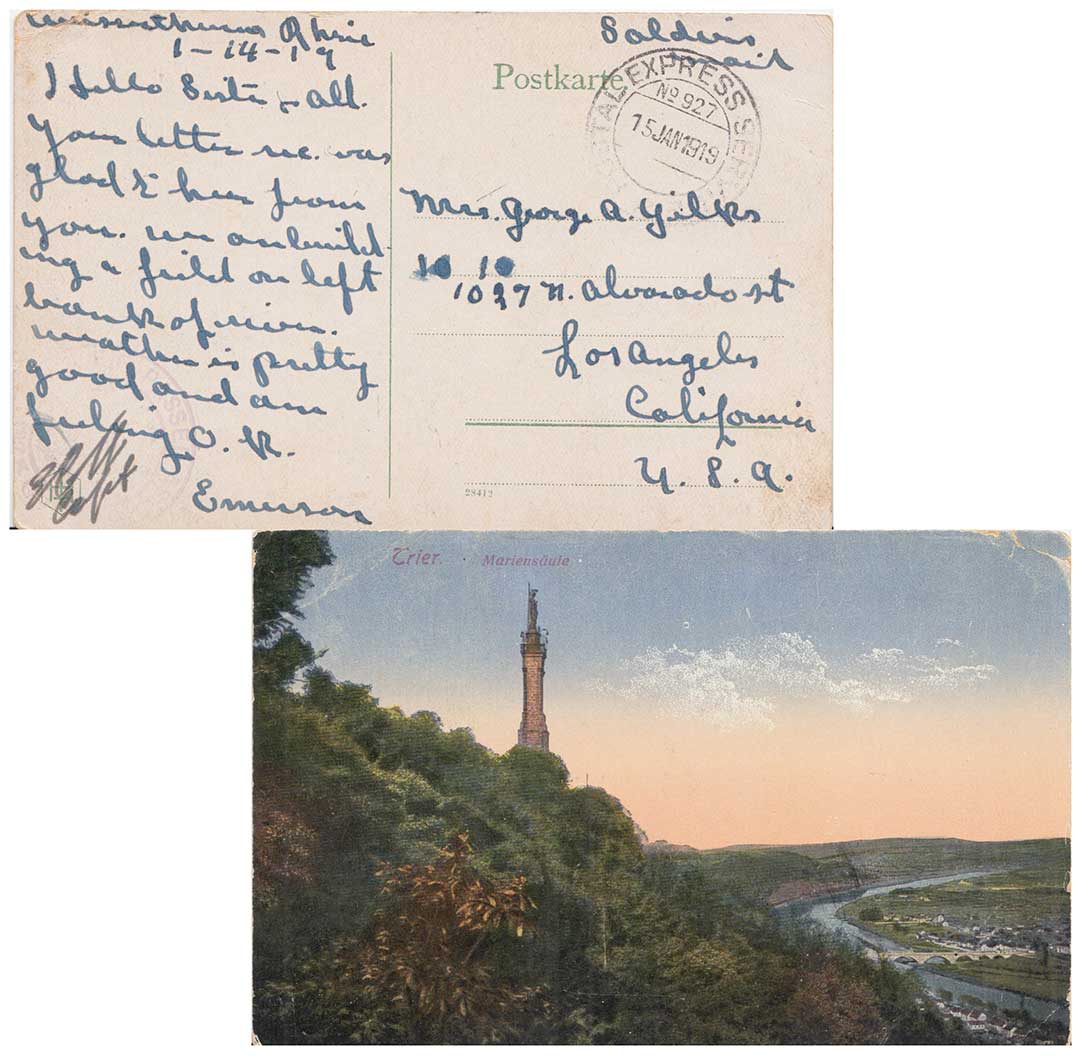 Rhine
1-14-19
Hello Sister & all.
Your letter rec. was
glad to hear from
you. we are build
ing a field on left
bank of river.
weather is pretty
good and am
feeling O.K.
Emerson
Capt
Soldiers
mail
Postkarte
POSTAL EXPRESS SERVICE
No 927
15 JAN 1919
Mrs. George A. Gilks
10 10
1027 N. Alvarado st
Los Angeles
California
U. S. A.
28412
Trier. Mariensäule